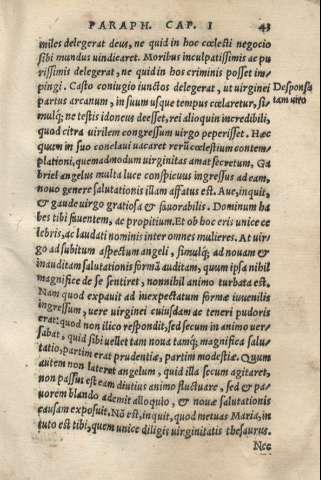 PARAPH. CAP. I 43
miles delegerat deus, ne quid in hoc cœlesti negocio
sibi mundus uindicaret. Moribus inculpatissimis ac pu
rissimis delegerat, ne quid in hos criminis posset im-
pingi. Casto coniugio iunctos delegerat, ut uirginei
Desponsa
partus arcanum, in suum usque tempus cœlaretur, si-
tam uiro
mulq́; ne testis idoneus deesset, rei alioquin incredibili,
quod citra uirilem congressum uirgo peperisset. Hæc
quum in suo conclaui uacaret rerū cœlestium contem-
plationi, quemadmodum uirginitas amat secretum, Ga
briel angelus multa luce conspicuus ingressus ad eam,
nouo genere salutationis illam affatus est. Aue, inquit,
& gaude uirgo gratiosa & fauorabilis. Dominum ha
bes tibi fauentem, ac propitium. Et ob hoc eris unice ce
lebris, ac laudati nominis inter omnes mulieres. At uir-
go ad subitum aspectum angeli, simulq́; ad nouam &
inauditam salutationis formā auditam, quum ipsa nihil
magnifice de se sentiret, nonnihil animo turbata est.
Nam quod expauit ad inexpectatum formæ iuuenilis
ingressum, uere uirginei cuiusdam ac teneri pudoris
erat: quod non ilico respondit, sed secum in animo uer-
sabat, quid sibi uellet tam noua tamq́; magnifica salu-
tatio, partim erat prudentiæ, partim modestiæ. Quum
autem non lateret angelum, quid illa secum agitaret,
non passus est eam diutius animo fluctuare, sed & pa-
uorem blando ademit alloquio, & nouæ salutationis
causam exposuit. Nō est, inquit, quod metuas Maria, in
tuto est tibi, quem unice diligis uirginitatis thesaurus.
Nec